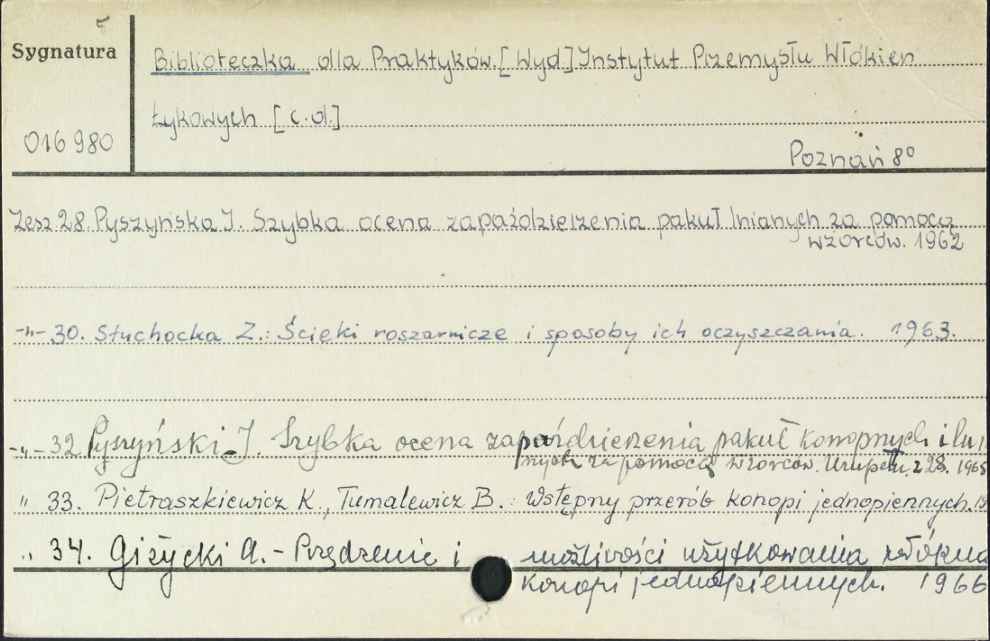 Sygnatura
016 980
Biblioteczka dla Praktyków. [Wyd] Instytut Przemysłu Włókien
Łykowych [c.d.]
Poznań 8°
Zesz. 28. Pyszyńska J. Szybka ocena zapaździerzenia pakuł lnianych za pomocą
wzorców. 1962
-"- 30. Słuchocka Z.: Ścieki roszarnicze i sposoby ich oczyszczania. 1963.
-"- 32 Pyszyński J. Szybka ocena zapaździerzenia pakuł konopnych i lni
nych za pomocą wzorców. Uzupełn. z 28. 1965
" 33. Pietraszkiewicz K., Tumalewicz B.: Wstępny przerób konopi jednopiennych.
" 34. Giżycki A. - Przędzenie i możliwości użytkowania włókna
konopi jednopiennych. 1966